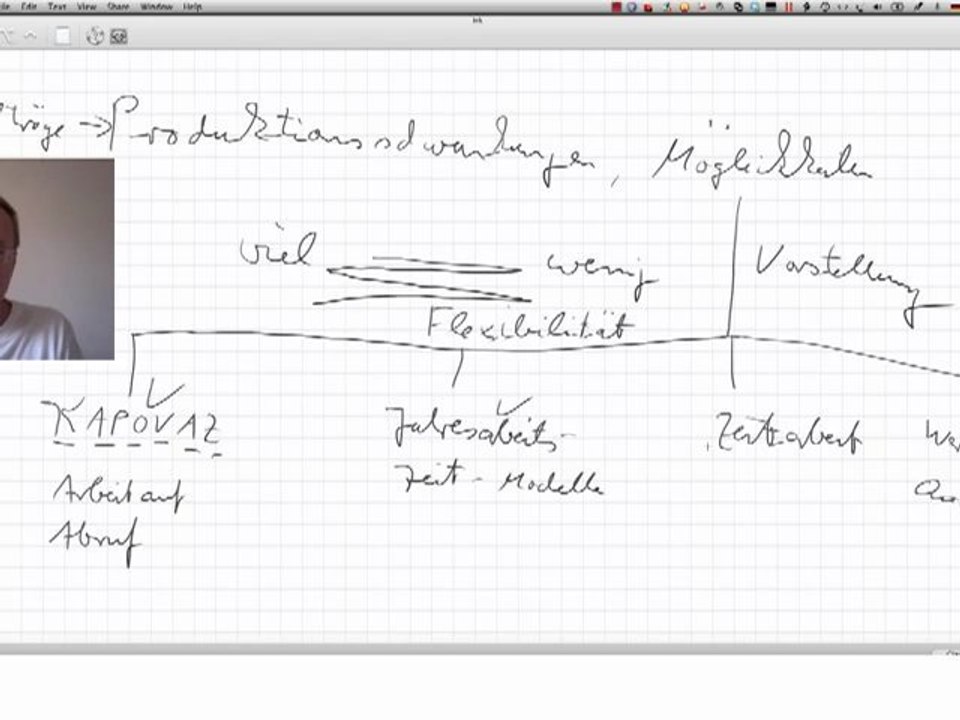 File Edit Text View Share Window Help
Ink
träge → Produktionsschwankungen, Möglichkeiten
viel wenig Vorstellung
Flexibilität
KAPOVAZ Jahresarbeits- Zeitarbeit We
Arbeit auf Zeit - Modelle
Abruf